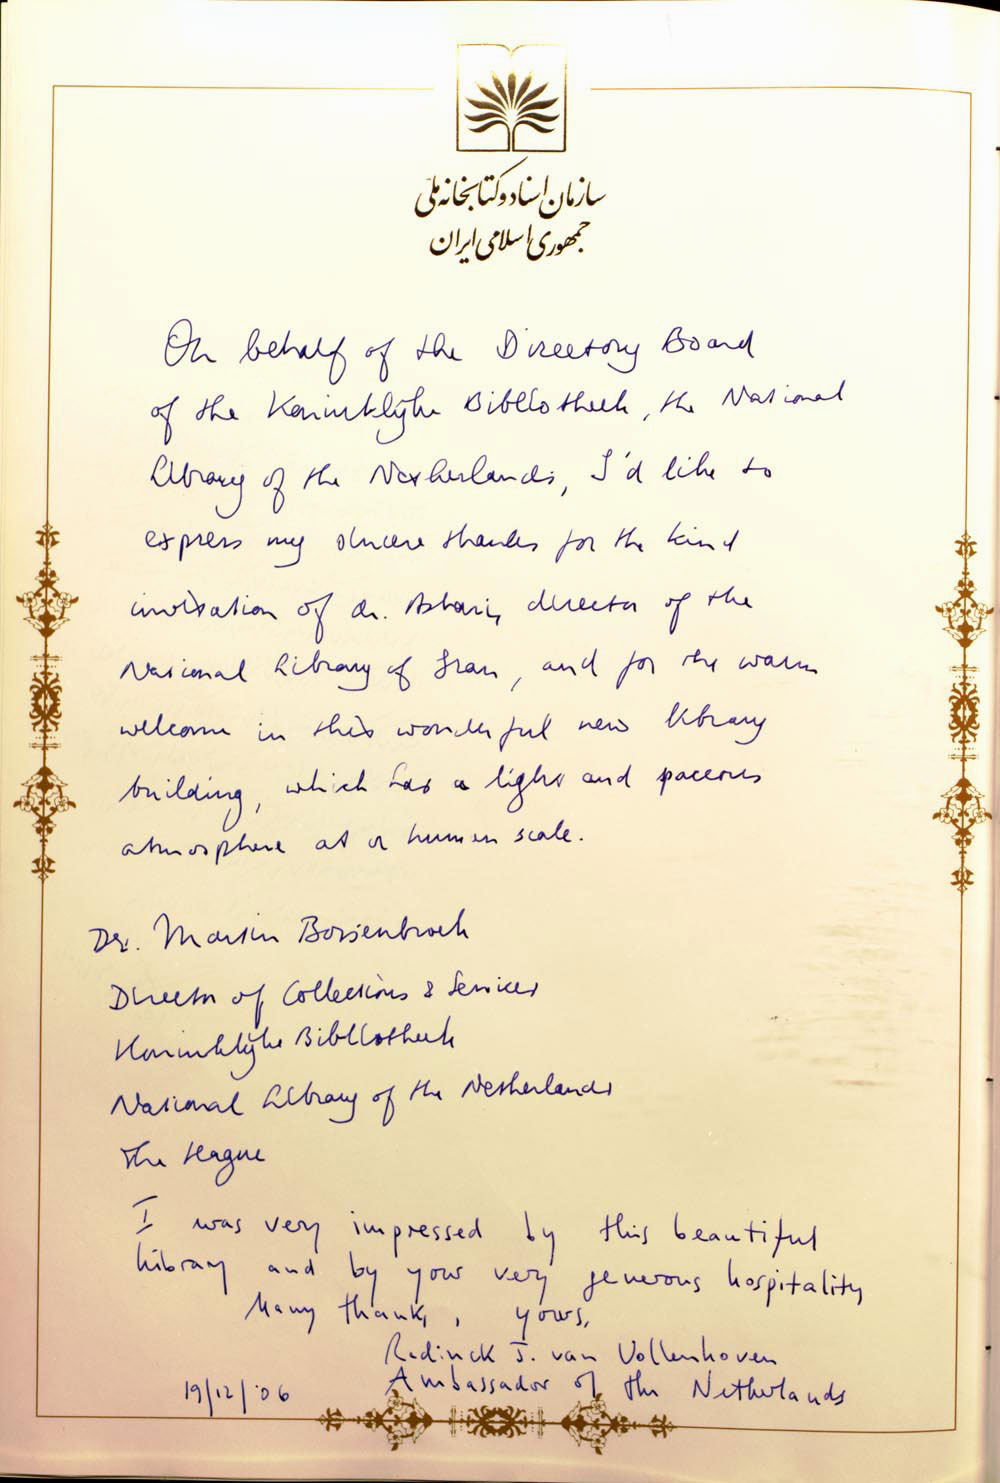 سازمان اسناد و کتابخانه ملی
جمهوری اسلامی ایران
On behalf of the Directory Board
of the Koninklijke Bibliotheek, the National
Library of the Netherlands, I'd like to
express my sincere thanks for the kind
invitation of dr. Ashari, director of the
National Library of Iran, and for the warm
welcome in this wonderful new library
building, which has a light and paceous
atmosphere at a human scale.
Dr. Martin Bossenbroek
Director of Collections & Services
Koninklijke Bibliotheek
National Library of the Netherlands
The Hague
I was very impressed by this beautiful
library and by your very generous hospitality
Many thanks, yours,
Radinck J. van Vollenhoven
Ambassador of the Netherlands
19/12/'06